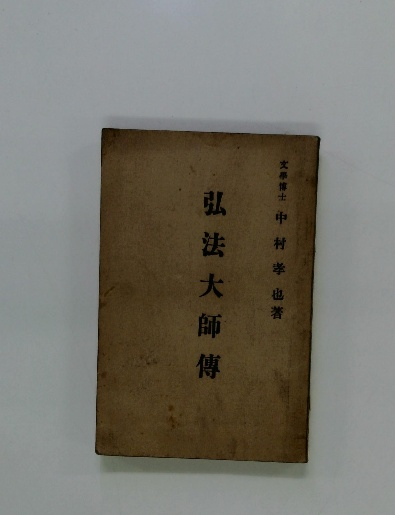 文學博士 中村孝也著
弘法大師傳